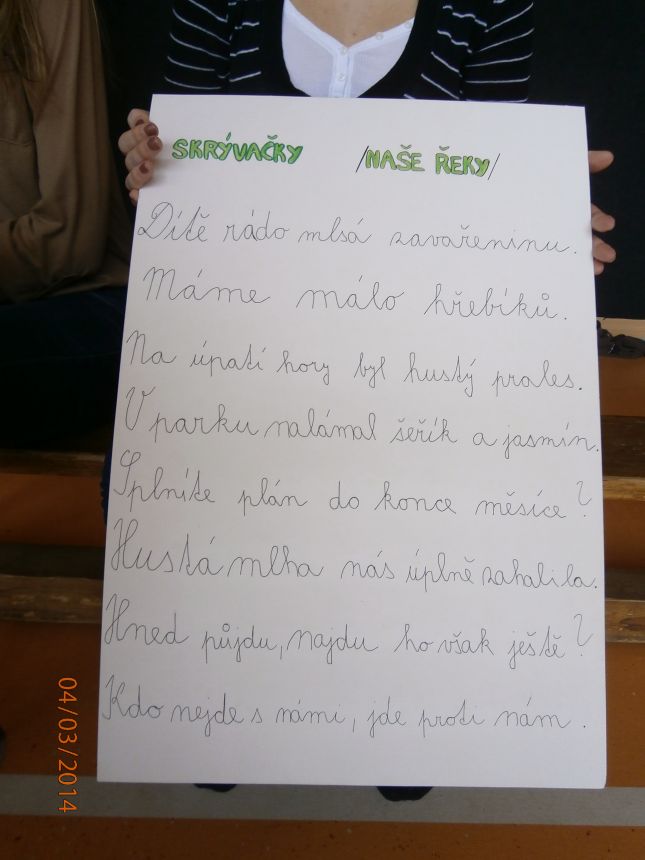 SKRÝVAČKY /NAŠE ŘEKY/
Dítě rádo mlsá zavařeninu.
Máme málo hřebíků.
Na úpatí hory byl hustý prales.
V parku nalámal šeřík a jasmín.
Splníte plán do konce měsíce?
Hustá mlha nás úplně zahalila.
Hned půjdu, najdu ho však ještě?
Kdo nejde s námi, jde proti nám.
04/03/2014